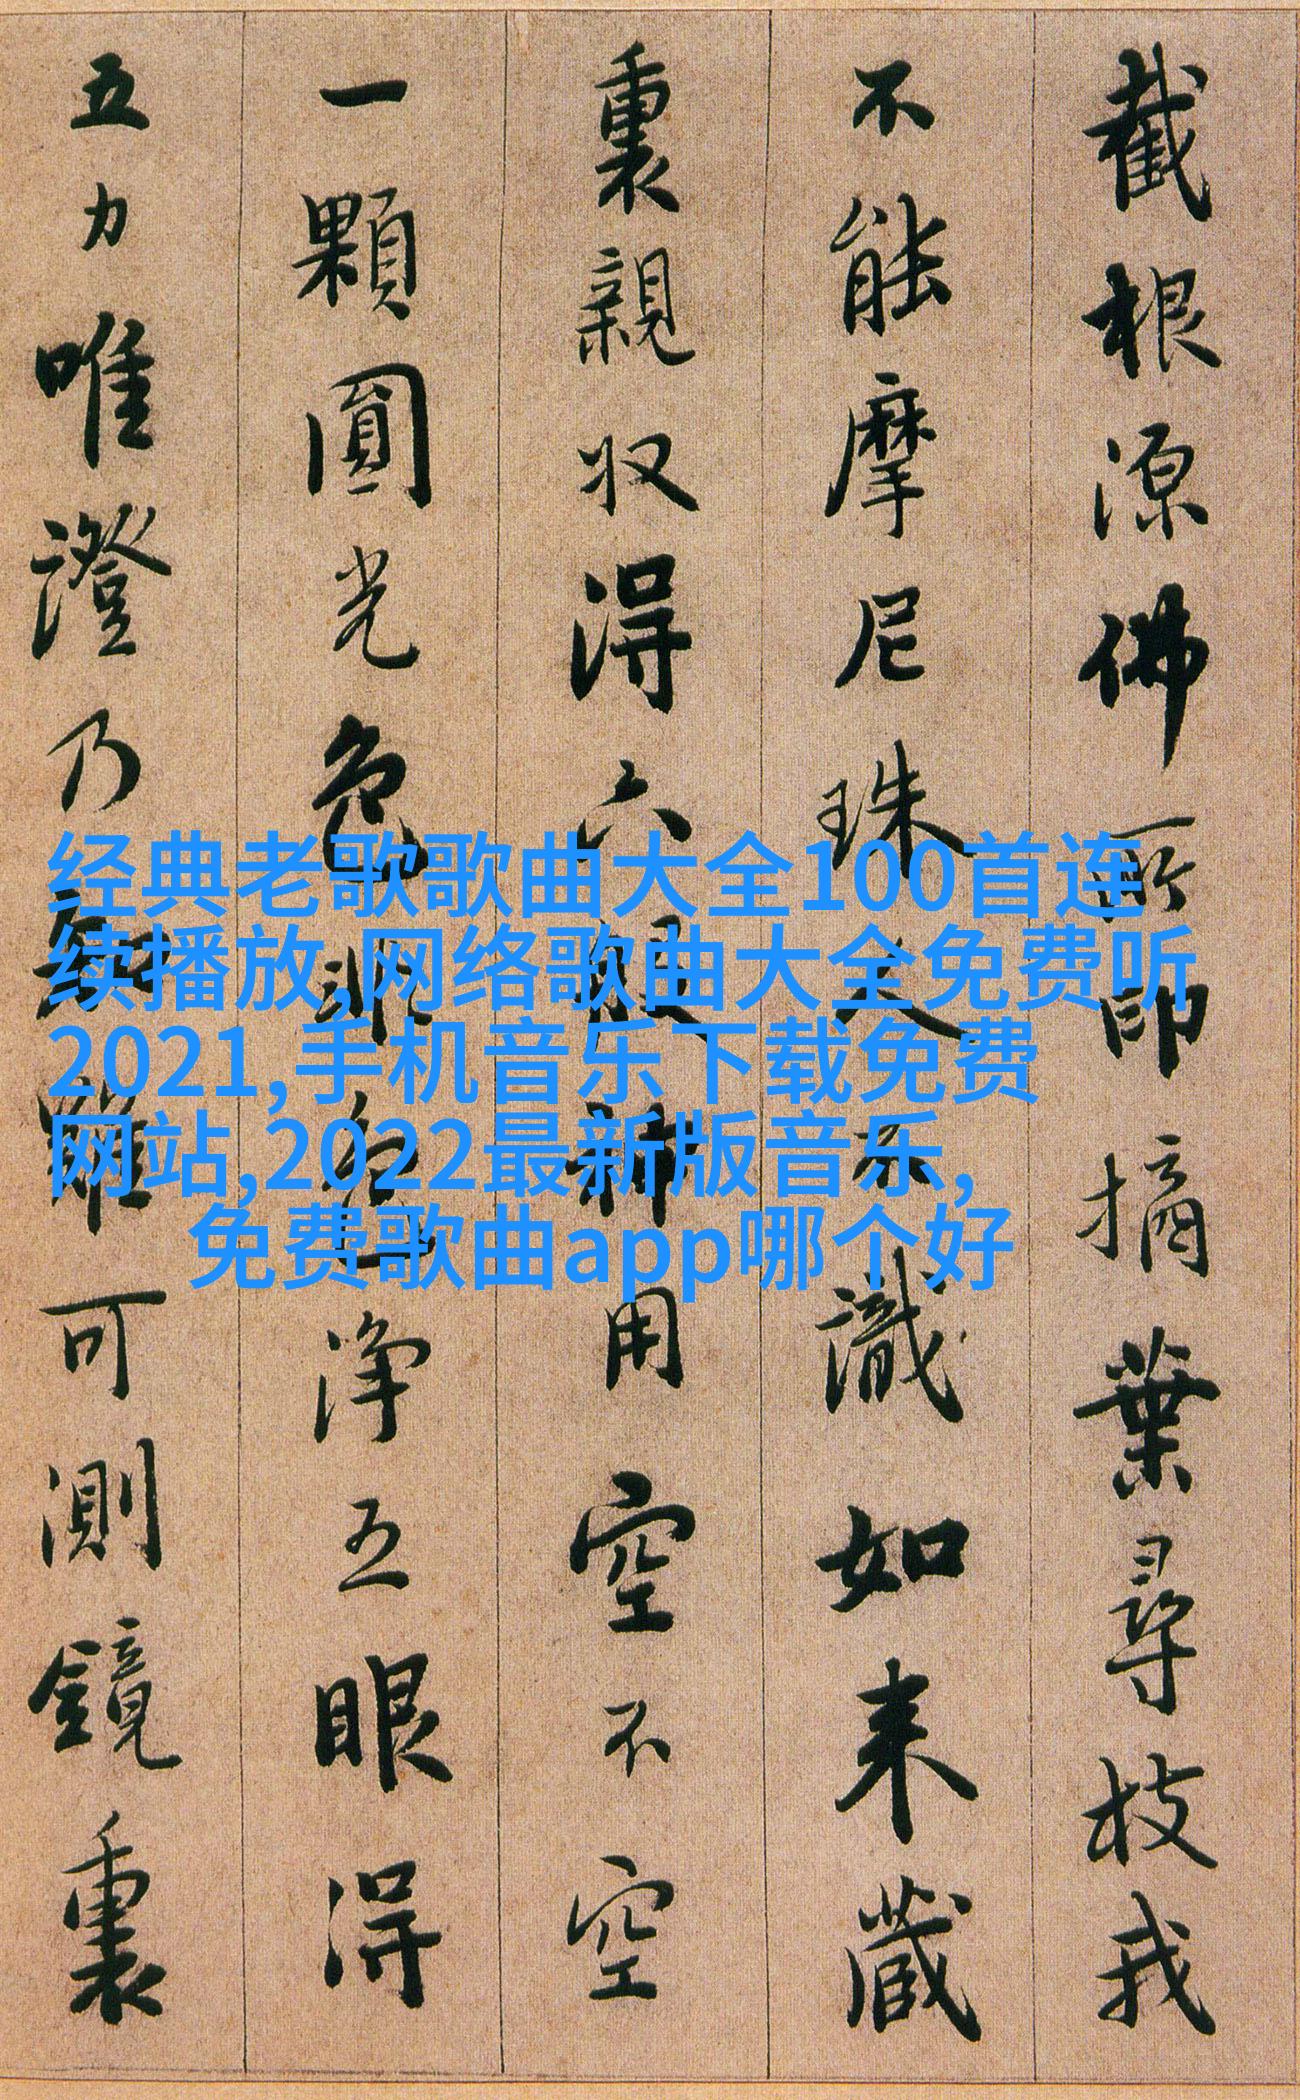 截根源佛所印摘葉尋枝我
不能摩尼珠人不識如来藏
裏親収得六般神用空不空
一顆圓光色非色净五眼得
五力唯證乃知難可測鏡裏
经典老歌歌曲大全100首连
续播放,网络歌曲大全免费听
2021,手机音乐下载免费
网站,2022最新版音乐,
免费歌曲app哪个好